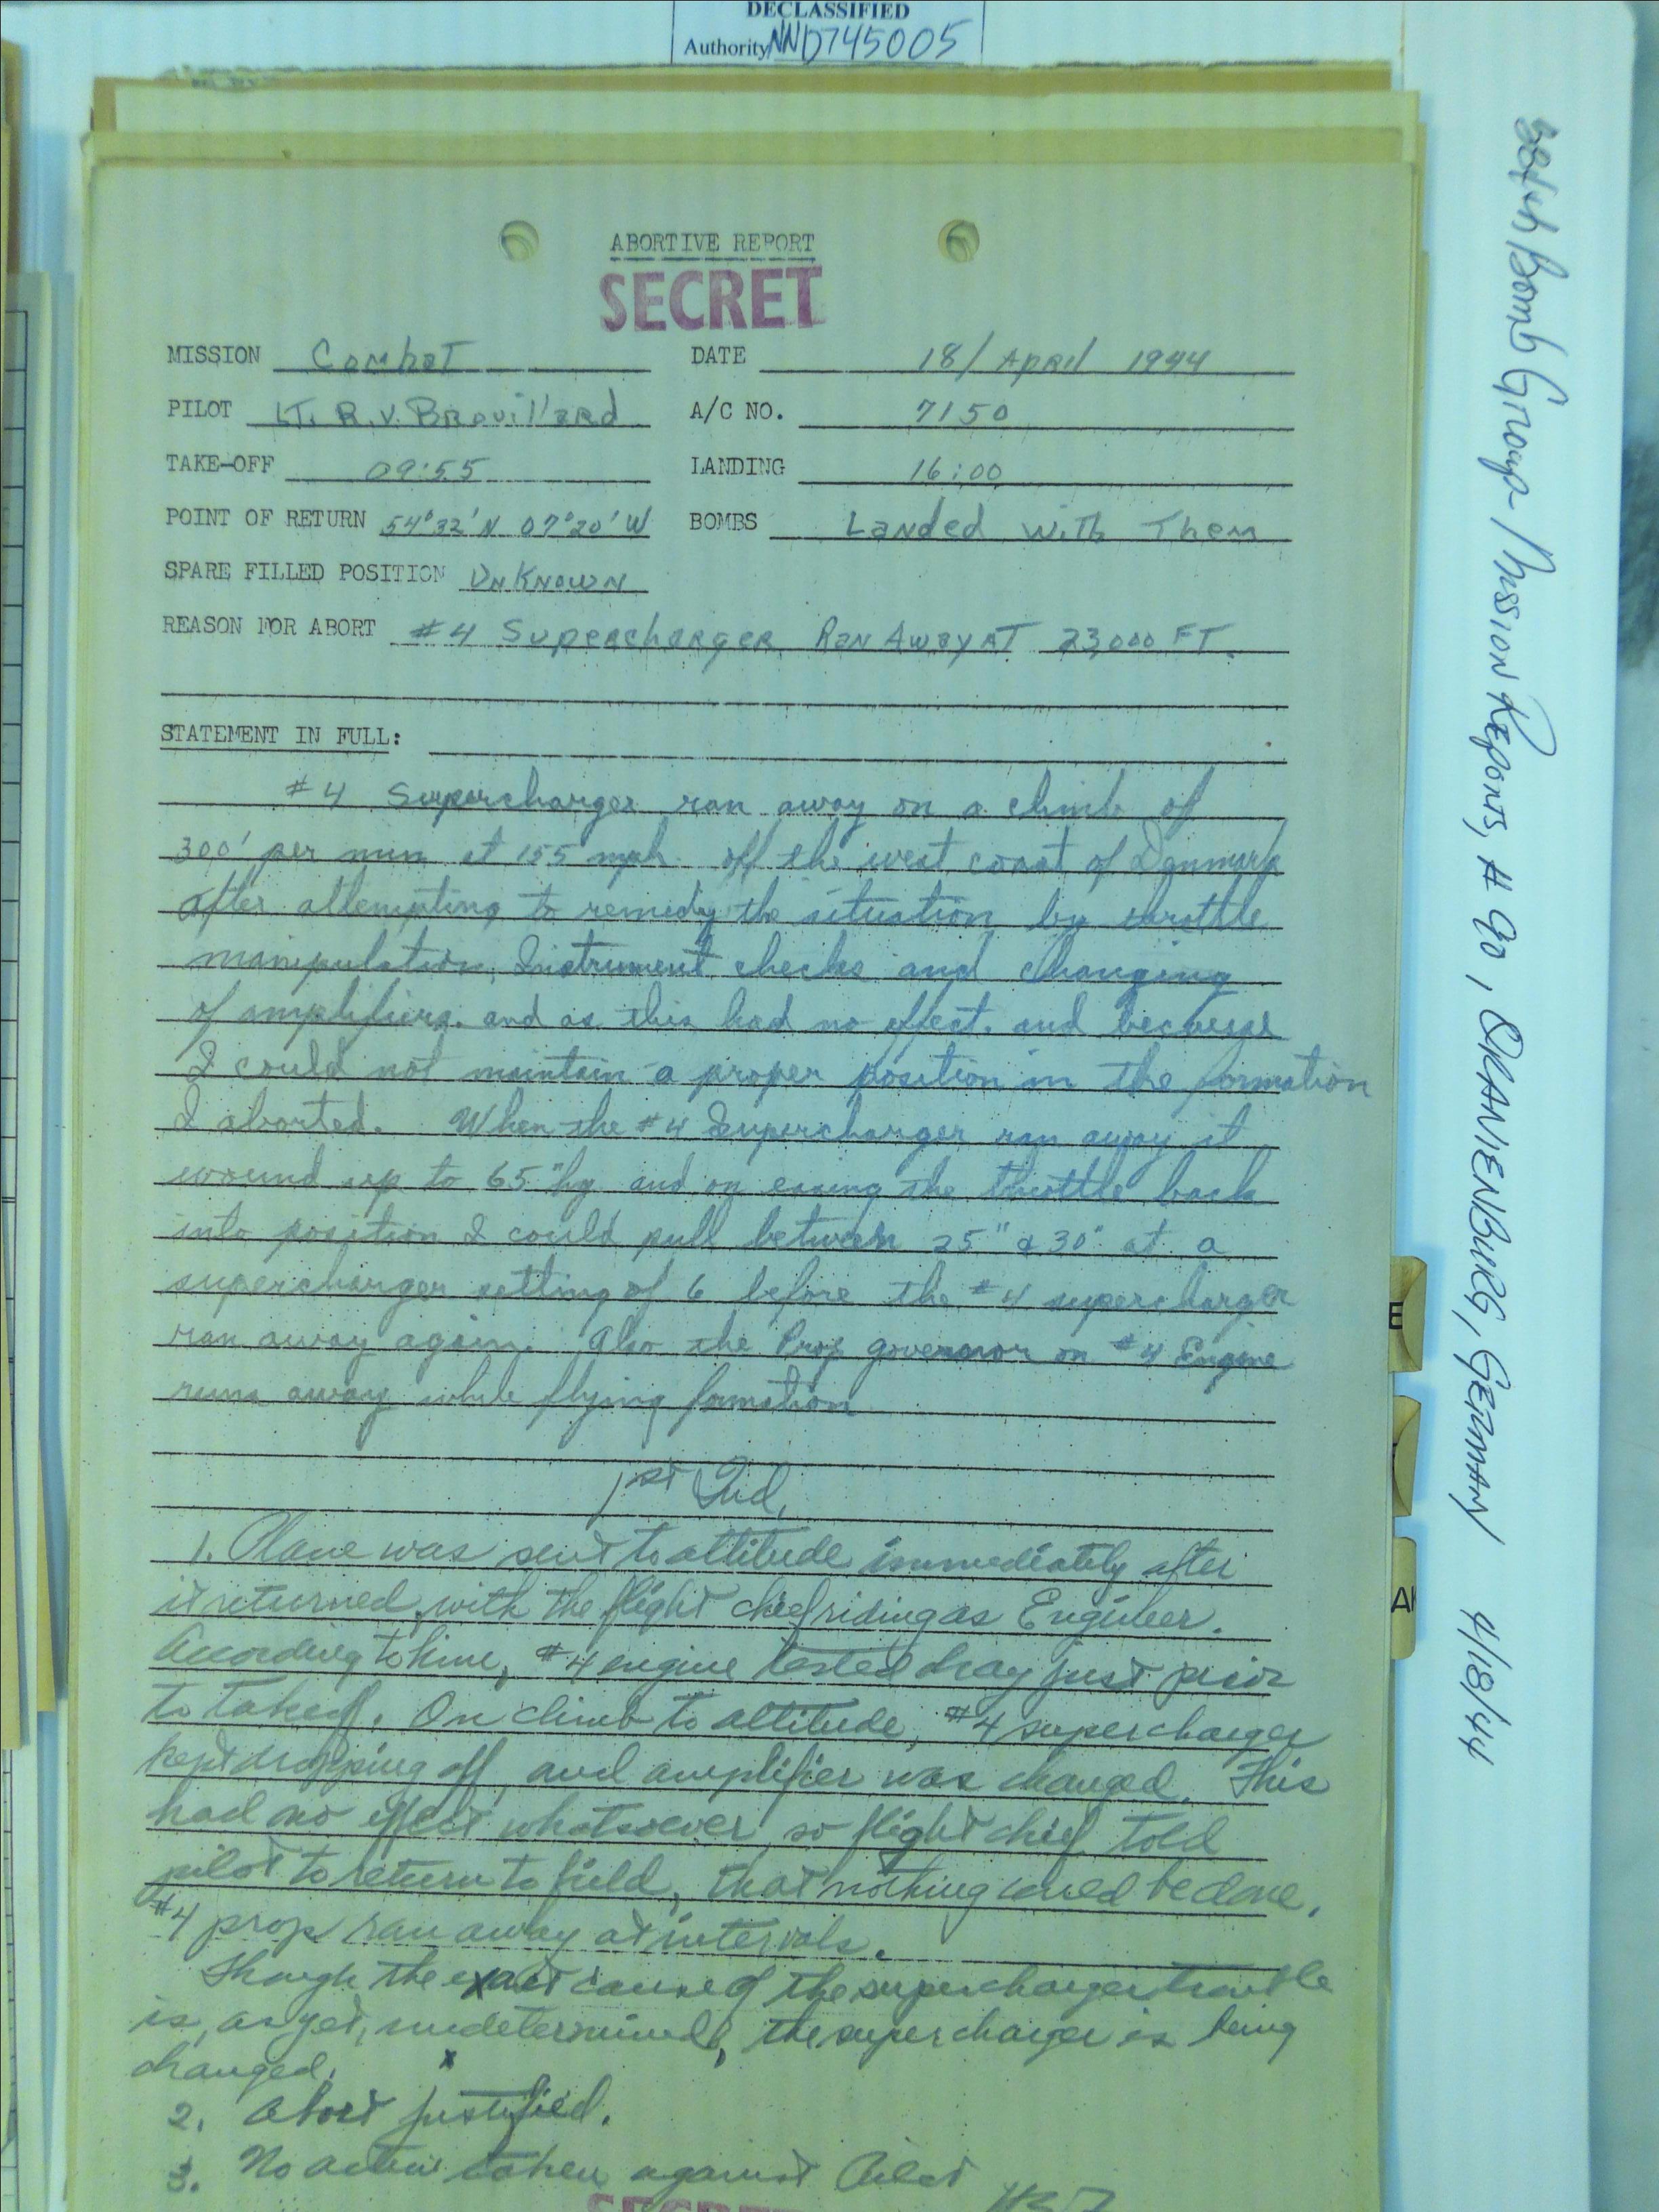 DECLASSIFIED
Authority NND745005
ABORTIVE REPORT
SECRET
MISSION Combat DATE 18/ April 1944
PILOT LT. R.V. Brouillard A/C NO. 7150
TAKE-OFF 09:55 LANDING 16:00
POINT OF RETURN 54°32'N 07°20'W BOMBS Landed with Them
SPARE FILLED POSITION UnKnown
REASON FOR ABORT #4 Supercharger Ran Away AT 23,000 FT.
STATEMENT IN FULL:
#4 Supercharger ran away on a climb of
300' per min at 155 mph. off the west coast of Denmark
after attempting to remedy the situation by throttle
manipulation, Instrument checks and changing
of amplifiers. and as this had no effect. and because
I could not maintain a proper position in the formation
I aborted. When the #4 Supercharger ran away it
wound up to 65"hg and on easing the throttle back
into position I could pull between 25" & 30" at a
supercharger setting of 6 before the #4 supercharger
ran away again. Also the Prop governor on #4 Engine
runs away while flying formation
1st Ind.
1. Plane was sent to altitude immediately after
it returned, with the flight chief riding as Engineer.
According to him, #4 engine tested okay just prior
to takeoff. On climb to altitude, #4 supercharger
kept dropping off, and amplifier was changed. This
had no effect whatsoever, so flight chief told
pilot to return to field, that nothing could be done.
#4 prop ran away at intervals.
Though the exact cause of the supercharger trouble
is, as yet, undetermined, the supercharger is being
changed.
2. Abort justified.
3. No action taken against Pilot
SECRET
Bomb Group Mission Reports, # 90, ORANIENBURG, GERMANY 4/18/44
E
AK